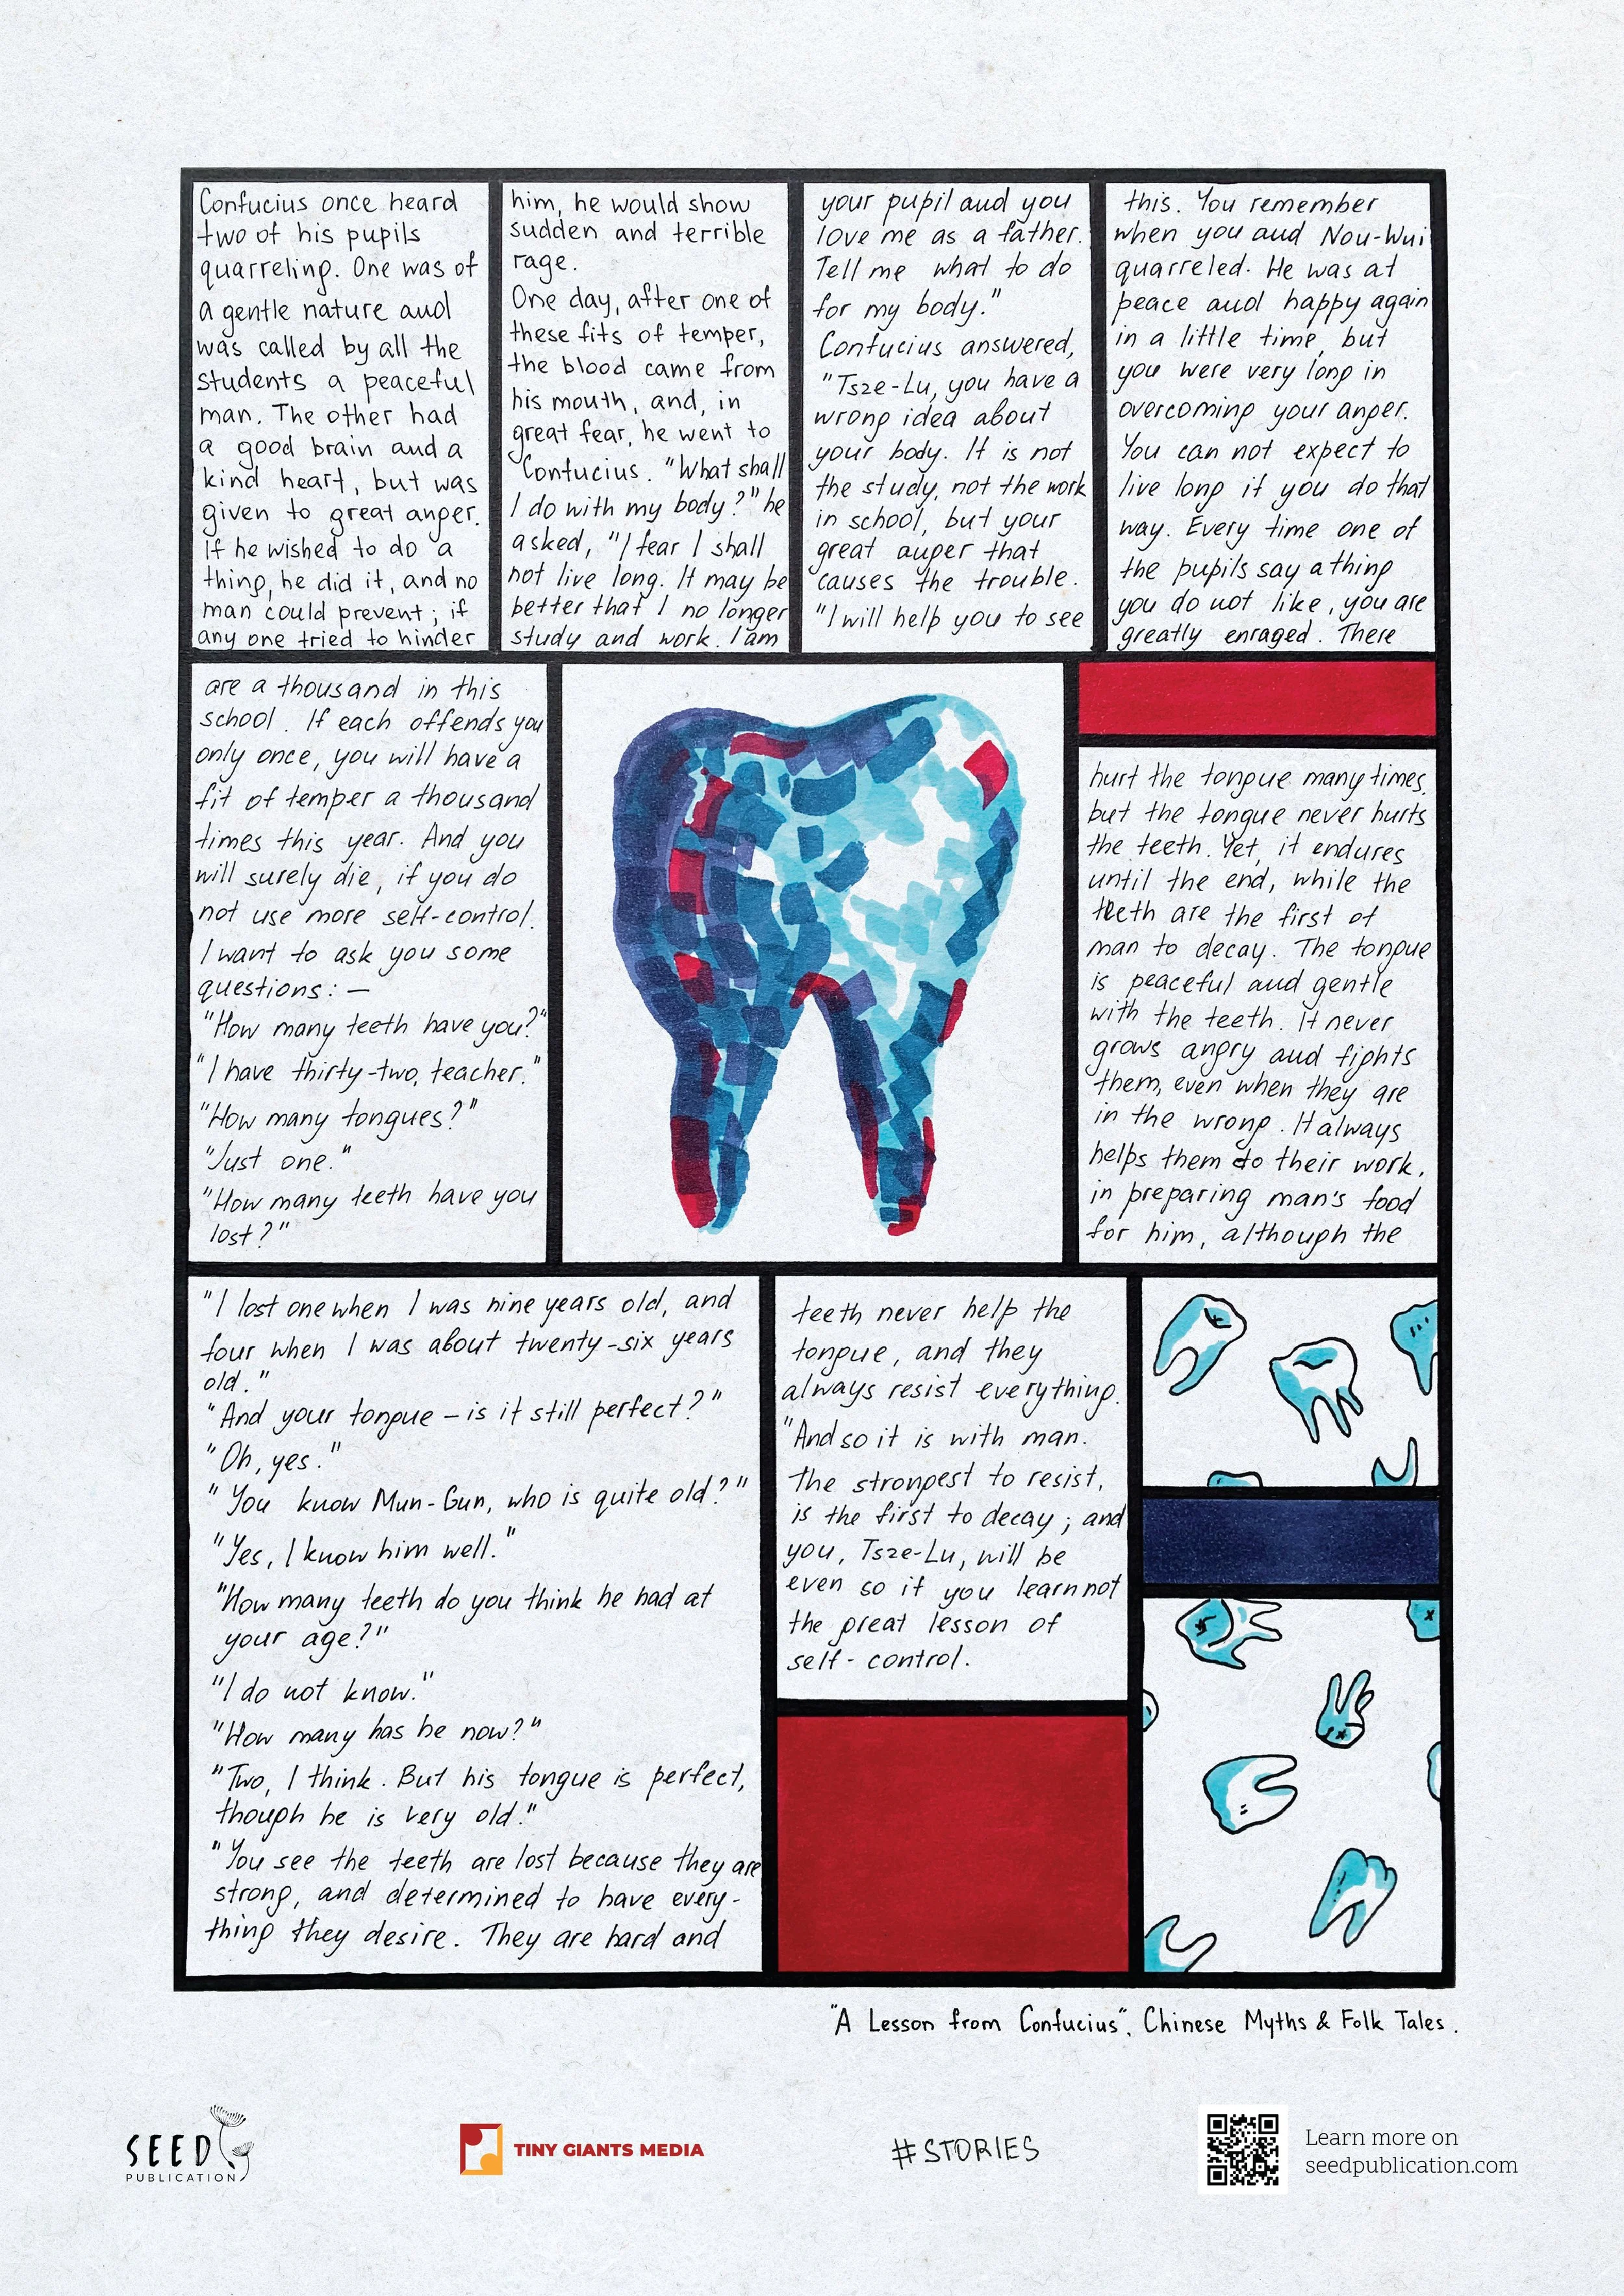 Confucius once heard
two of his pupils
quarreling. One was of
a gentle nature and
was called by all the
students a peaceful
man. The other had
a good brain and a
kind heart, but was
given to great anger.
If he wished to do a
thing, he did it, and no
man could prevent; if
any one tried to hinder
him, he would show
sudden and terrible
rage.
One day, after one of
these fits of temper,
the blood came from
his mouth, and, in
great fear, he went to
Confucius. "What shall
I do with my body?" he
asked, "I fear I shall
not live long. It may be
better that I no longer
study and work. I am
your pupil and you
love me as a father.
Tell me what to do
for my body."
Confucius answered,
"Tsze-Lu, you have a
wrong idea about
your body. It is not
the study, not the work
in school, but your
great anger that
causes the trouble.
"I will help you to see
this. You remember
when you and Nou-Wui
quarreled. He was at
peace and happy again
in a little time, but
you were very long in
overcoming your anger.
You can not expect to
live long if you do that
way. Every time one of
the pupils say a thing
you do not like, you are
greatly enraged. There
are a thousand in this
school. If each offends you
only once, you will have a
fit of temper a thousand
times this year. And you
will surely die, if you do
not use more self-control.
I want to ask you some
questions: —
"How many teeth have you?"
"I have thirty-two, teacher."
"How many tongues?"
"Just one."
"How many teeth have you
lost?"
"I lost one when I was nine years old, and
four when I was about twenty-six years
old."
"And your tongue – is it still perfect?"
"Oh, yes."
"You know Mun-Gun, who is quite old?"
"Yes, I know him well."
"How many teeth do you think he had at
your age?"
"I do not know."
"How many has he now?"
"Two, I think. But his tongue is perfect,
though he is very old."
"You see the teeth are lost because they are
strong, and determined to have every-
thing they desire. They are hard and
hurt the tongue many times,
but the tongue never hurts
the teeth. Yet, it endures
until the end, while the
teeth are the first of
man to decay. The tongue
is peaceful and gentle
with the teeth. It never
grows angry and fights
them, even when they are
in the wrong. It always
helps them do their work,
in preparing man's food
for him, although the
teeth never help the
tongue, and they
always resist everything.
"And so it is with man.
The strongest to resist,
is the first to decay; and
you, Tsze-Lu, will be
even so if you learn not
the great lesson of
self-control.
"A Lesson from Confucius", Chinese Myths & Folk Tales.
SEED
PUBLICATION
TINY GIANTS MEDIA
#STORIES
Learn more on
seedpublication.com